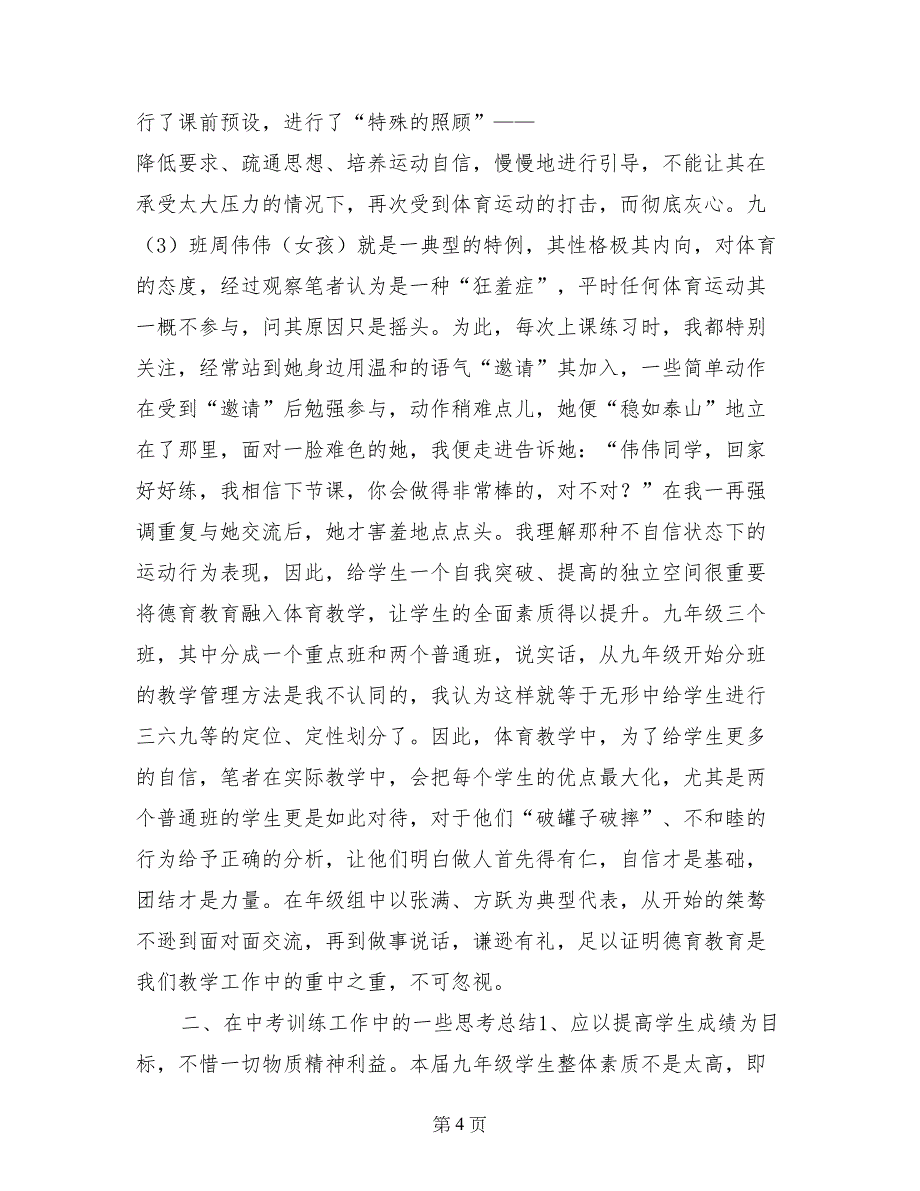 行了课前预设，进行了“特殊的照顾”——
降低要求、疏通思想、培养运动自信，慢慢地进行引导，不能让其在
承受太大压力的情况下，再次受到体育运动的打击，而彻底灰心。九
（3）班周伟伟（女孩）就是一典型的特例，其性格极其内向，对体育
的态度，经过观察笔者认为是一种“狂羞症”，平时任何体育运动其
一概不参与，问其原因只是摇头。为此，每次上课练习时，我都特别
关注，经常站到她身边用温和的语气“邀请”其加入，一些简单动作
在受到“邀请”后勉强参与，动作稍难点儿，她便“稳如泰山”地立
在了那里，面对一脸难色的她，我便走进告诉她：“伟伟同学，回家
好好练，我相信下节课，你会做得非常棒的，对不对？”在我一再强
调重复与她交流后，她才害羞地点点头。我理解那种不自信状态下的
运动行为表现，因此，给学生一个自我突破、提高的独立空间很重要
将德育教育融入体育教学，让学生的全面素质得以提升。九年级三个
班，其中分成一个重点班和两个普通班，说实话，从九年级开始分班
的教学管理方法是我不认同的，我认为这样就等于无形中给学生进行
三六九等的定位、定性划分了。因此，体育教学中，为了给学生更多
的自信，笔者在实际教学中，会把每个学生的优点最大化，尤其是两
个普通班的学生更是如此对待，对于他们“破罐子破摔”、不和睦的
行为给予正确的分析，让他们明白做人首先得有仁，自信才是基础，
团结才是力量。在年级组中以张满、方跃为典型代表，从开始的桀骜
不逊到面对面交流，再到做事说话，谦逊有礼，足以证明德育教育是
我们教学工作中的重中之重，不可忽视。
二、在中考训练工作中的一些思考总结1、应以提高学生成绩为目
标，不惜一切物质精神利益。本届九年级学生整体素质不是太高，即
第 4 页